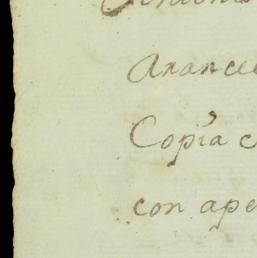 Arance
Copia c
con ape